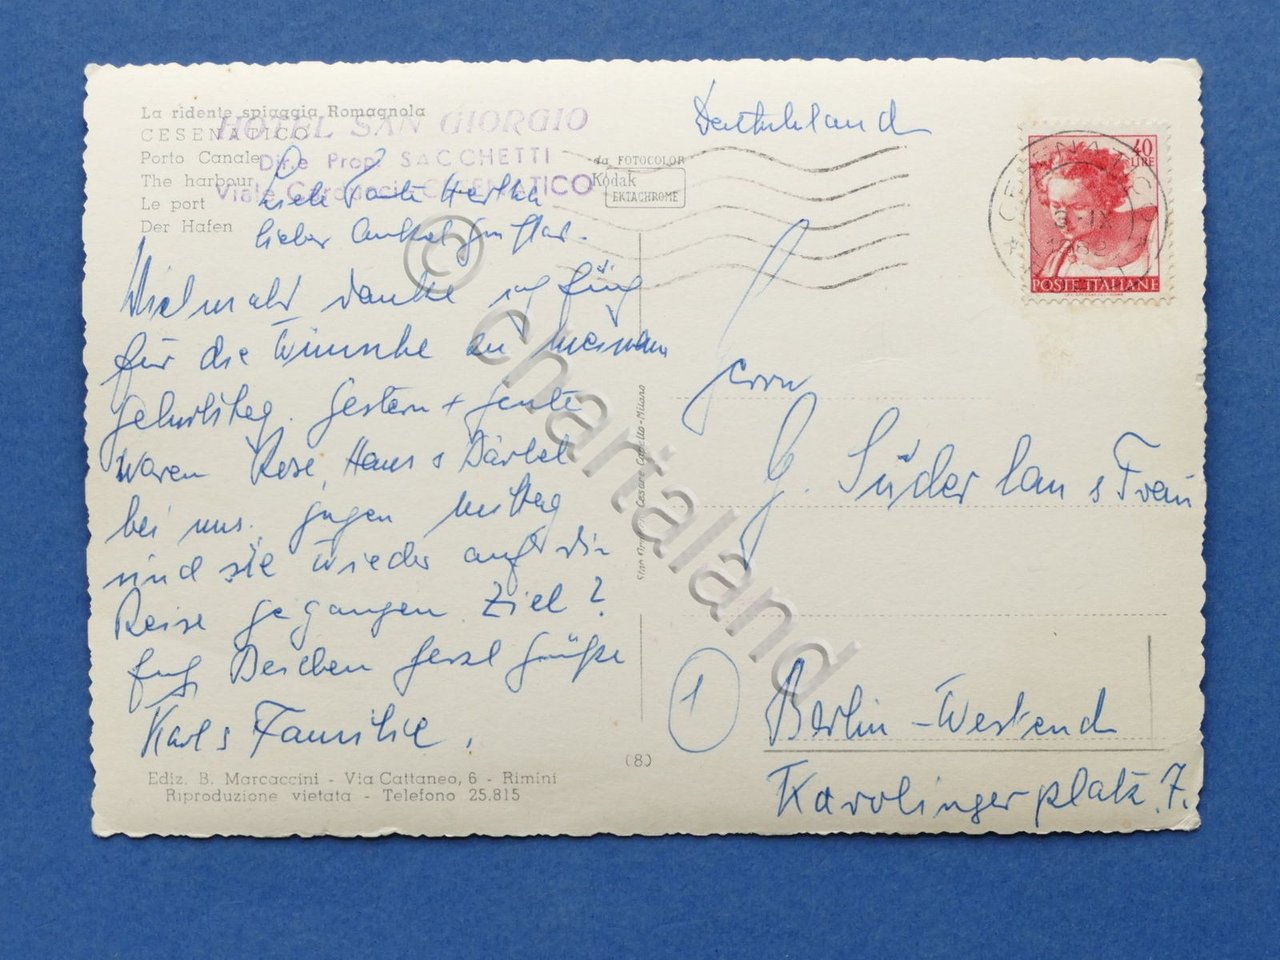 La ridente spiaggia Romagnola
CESENATICO
Porto Canale
The harbour
Le port
Der Hafen
HOTEL SAN GIORGIO
Dir. e Prop. SACCHETTI
Viale Carducci CESENATICO
da FOTOCOLOR
Kodak
EKTACHROME
Liebe Tante Hertha
lieber Onkel Gustav.
Vielmals danke ich
für die Wünsche zu meinem
Geburtstag. Gestern + heute
waren Rose, Hans & Bärbel
bei uns, gegen Mittag
sind sie wieder auf die
Reise gegangen. Ziel?
Euch Beiden herzl Grüße
Karl & Familie,
Ediz. B. Marcaccini - Via Cattaneo, 6 - Rimini
Riproduzione vietata - Telefono 25.815
(8)
Cesare Capello - Milano
Deutschland
40
LIRE
POSTE ITALIANE
Herrn
G. Süderlau & Frau
1
Berlin-Westend
Karolingerplatz. 7.
© chartaland